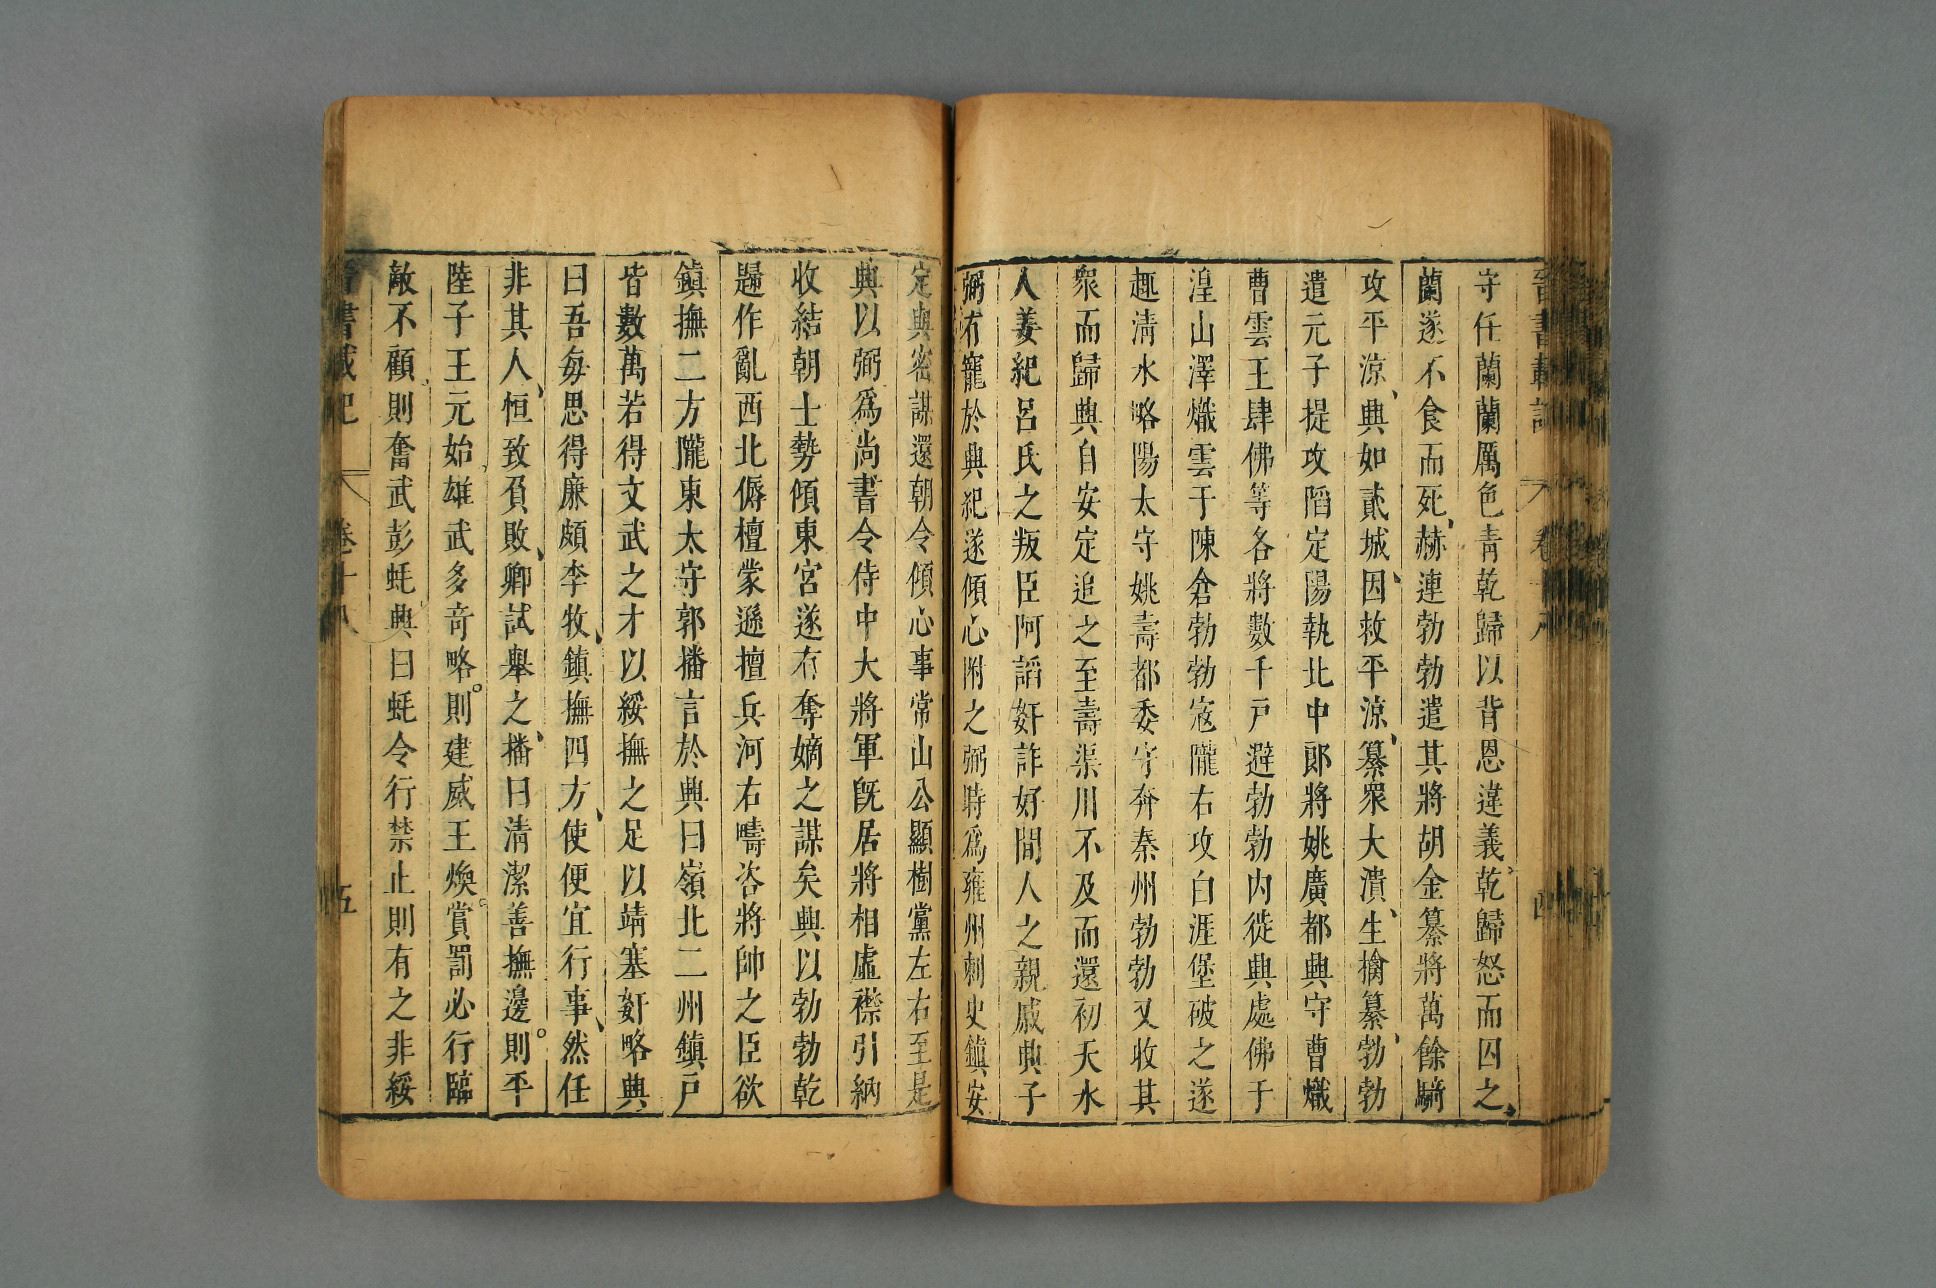 守任蘭蘭厲色責乾歸以背恩違義乾歸怒而囚之
蘭遂不食而死赫連勃勃遣其將胡金纂將萬餘騎
攻平涼興如貳城因救平涼纂衆大潰生擒纂勃勃
遣兄子提攻陷定陽執北中郎將姚廣都興守曹熾
曹雲王肆佛等各將數千戸避勃勃内徙興處佛于
湟山澤熾雲于陳倉勃勃寇隴右攻白涯堡破之遂
趣淸水略陽太守姚壽都委守奔秦州勃勃又收其
衆而歸興自安定追之至壽渠川不及而還初天水
人姜紀呂氏之叛臣阿諂姧詐好間人之親戚興子
弼有寵於興紀遂傾心附之弼時爲雍州刺史鎭安
定與密謀還朝令傾心事常山公顯樹黨左右至是
興以弼爲尚書令侍中大將軍旣居將相虚襟引納
收結朝士勢傾東宮遂有奪嫡之謀矣興以勃勃乾
歸作亂西北傉檀蒙遜擅兵河右疇咨將帥之臣欲
鎭撫二方隴東太守郭播言於興曰嶺北二州鎭戸
皆數萬若得文武之才以綏撫之足以靖塞姧略興
曰吾每思得廉頗李牧鎭撫四方使便宜行事然任
非其人恒致負敗卿試舉之播曰淸潔善撫邊則平
陸子王元始雄武多奇略則建威王煥賞罰必行臨
敵不顧則奮武彭蚝興曰蚝令行禁止則有之非綏
晉書載記 卷十八 五